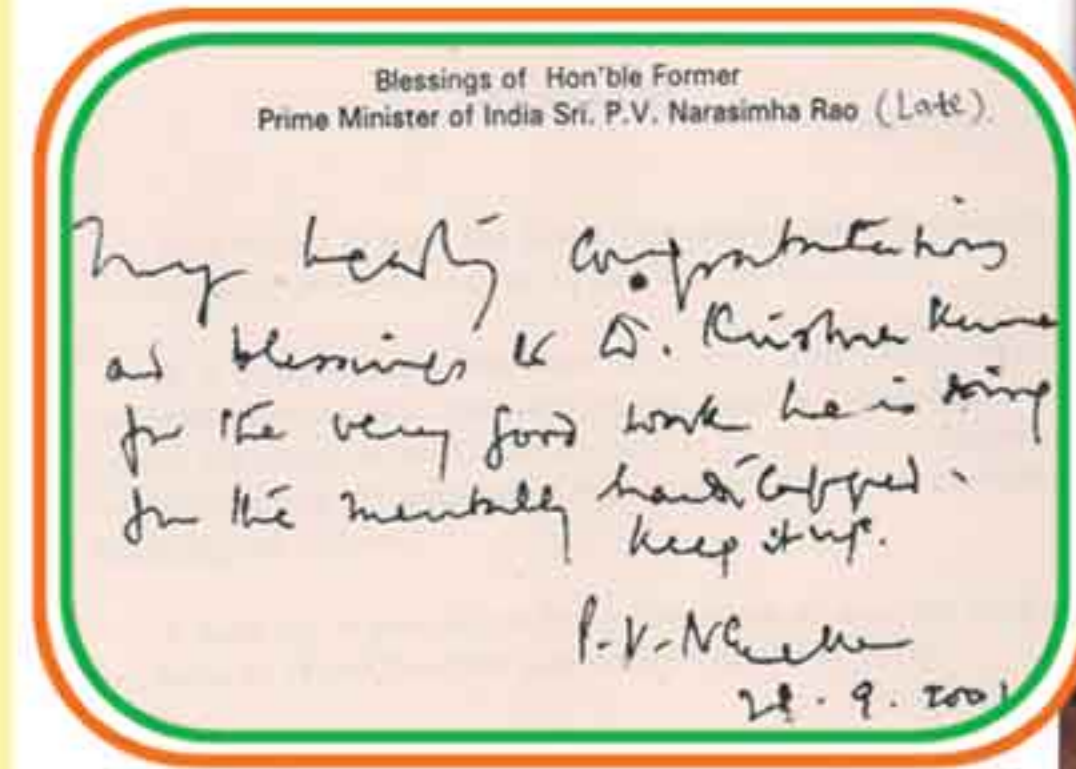 Blessings of Hon'ble Former
Prime Minister of India Sri. P.V. Narasimha Rao (Late)
My hearty congratulations
and blessings to Dr. Krishna Kumar
for the very good work he is doing
for the mentally handicapped.
keep it up.
P.V. N
9.2001